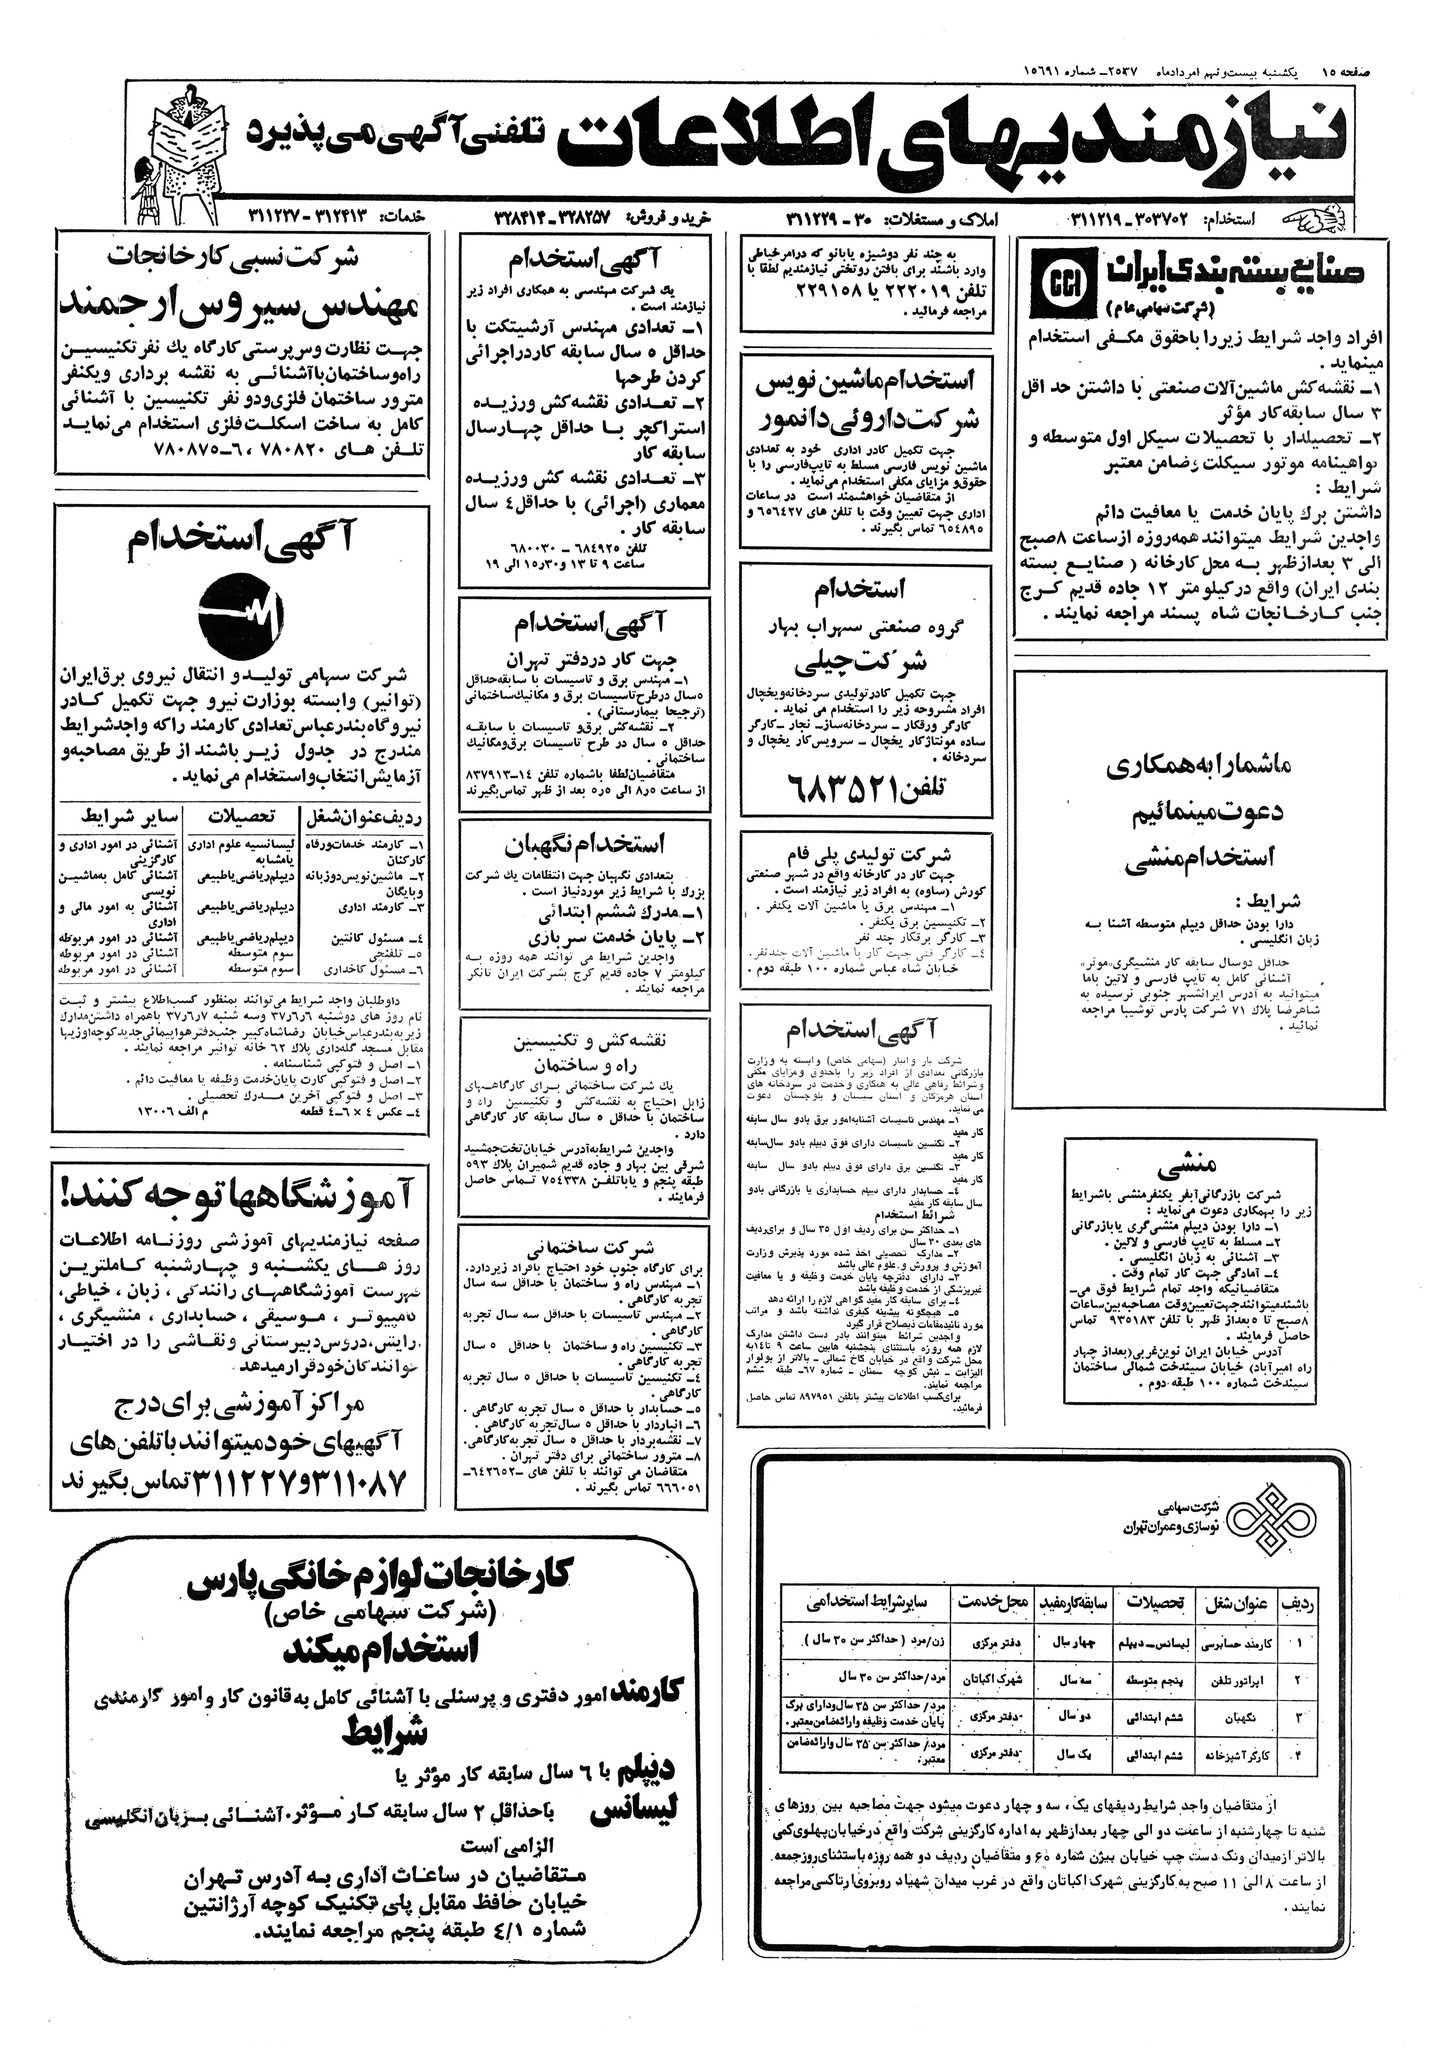 صفحه ۱۵ یکشنبه بیست و نهم امردادماه ۲۵۳۷ـ شماره ۱۵۶۹۱
نیازمندیهای اطلاعات تلفنی آگهی می‌پذیرد
استخدام: ۳۰۳۷۰۲ـ۳۱۱۲۱۹
املاک و مستغلات: ۳۰ـ۳۱۱۲۲۹
خرید و فروش: ۳۲۸۲۵۷ـ۳۲۸۴۱۴
خدمات: ۳۱۲۴۱۳ـ۳۱۱۲۲۷
صنایع بسته بندی ایران
(شرکت سهامی عام)
افراد واجد شرایط زیر را با حقوق مکفی استخدام
مینماید .
۱ـ نقشه‌کش ماشین‌آلات صنعتی با داشتن حد اقل
۳ سال سابقه کار مؤثر
۲ـ تحصیلدار با تحصیلات سیکل اول متوسطه و
گواهینامه موتور سیکلت و ضامن معتبر
شرایط :
داشتن برگ پایان خدمت یا معافیت دائم
واجدین شرایط میتوانند همه‌روزه از ساعت ۸ صبح
الی ۳ بعدازظهر به محل کارخانه ( صنایع بسته
بندی ایران) واقع در کیلو متر ۱۲ جاده قدیم کرج
جنب کارخانجات شاه پسند مراجعه نمایند .
ما شما را به همکاری
دعوت مینمائیم
استخدام منشی
شرایط :
دارا بودن حداقل دیپلم متوسطه آشنا به
زبان انگلیسی .
حداقل دوسال سابقه کار منشیگری «موثر»
آشنائی کامل به تایپ فارسی و لاتین باما
میتوانید به آدرس ایرانشهر جنوبی نرسیده به
شاهرضا پلاک ۷۱ شرکت پارس توشیبا مراجعه
نمائید .
منشی
شرکت بازرگانی آبفر یکنفر منشی باشرایط
زیر را بهمکاری دعوت می‌نماید :
۱ـ دارا بودن دیپلم منشی‌گری یا بازرگانی
۲ـ مسلط به تایپ فارسی و لاتین .
۳ـ آشنائی به زبان انگلیسی .
۴ـ آمادگی جهت کار تمام وقت .
متقاضیانیکه واجد تمام شرایط فوق می‌ـ
باشند میتوانند جهت تعیین وقت مصاحبه بین ساعات
۸ صبح تا ۵ بعداز ظهر با تلفن ۹۳۵۱۸۳ تماس
حاصل فرمایند .
آدرس خیابان ایران نوین غربی (بعداز چهار
راه امیرآباد) خیابان سیندخت شمالی ساختمان
سیندخت شماره ۱۰۰ طبقه دوم .
به چند نفر دوشیزه یا بانو که در امر خیاطی
وارد باشند برای بافتن روتختی نیازمندیم لطفا با
تلفن ۲۲۲۰۱۹ یا ۲۲۹۱۵۸
مراجعه فرمائید .
استخدام ماشین نویس
شرکت داروئی دانمور
جهت تکمیل کادر اداری خود به تعدادی
ماشین نویس فارسی مسلط به تایپ فارسی را با
حقوق و مزایای مکفی استخدام می‌نماید .
از متقاضیان خواهشمند است در ساعات
اداری جهت تعیین وقت با تلفن های ۶۵۶۴۲۷ و
۶۵۴۸۹۵ تماس بگیرند .
استخدام
گروه صنعتی سهراب بهار
شرکت چیلی
جهت تکمیل کادر تولیدی سردخانه و یخچال
افراد مشروحه زیر را استخدام می نماید .
کارگر ورقکار ـ سردخانه‌ساز ـ نجار ـ کارگر
ساده مونتاژکار یخچال ـ سرویس‌کار یخچال و
سردخانه .
تلفن ۶۸۳۵۲۱
شرکت تولیدی پلی فام
جهت کار در کارخانه واقع در شهر صنعتی
کورش (ساوه) به افراد زیر نیازمند است .
۱ـ مهندس برق یا ماشین آلات یکنفر .
۲ـ تکنیسین برق یکنفر .
۳ـ کارگر برقکار چند نفر
۴ـ کارگر فنی جهت کار با ماشین آلات چندنفر.
خیابان شاه عباس شماره ۱۰۰ طبقه دوم .
آگهی استخدام
شرکت بار و انبار (سهامی خاص) وابسته به وزارت
بازرگانی تعدادی از افراد زیر را باحقوق و مزایای مکفی
و شرائط رفاهی عالی به همکاری و خدمت در سردخانه های
استان هرمزگان و استان سیستان و بلوچستان دعوت
می نماید.
۱ـ مهندس تاسیسات آشنا به امور برق با دو سال سابقه
کار مفید
۲ـ تکنسین تاسیسات دارای فوق دیپلم بادو سال سابقه
کار مفید
۳ـ تکنسین برق دارای فوق دیپلم بادو سال سابقه
کار مفید
۴ـ حسابدار دارای دیپلم حسابداری یا بازرگانی بادو
سال سابقه کار مفید
شرائط استخدام
۱ـ حداکثر سن برای ردیف اول ۳۵ سال و برای ردیف
های بعدی ۳۰ سال
۲ـ مدارک تحصیلی اخذ شده مورد پذیرش وزارت
آموزش و پرورش و علوم عالی باشد
۳ـ دارای دفترچه پایان خدمت وظیفه و یا معافیت
غیرپزشکی از خدمت وظیفه باشد
۴ـ برای سابقه کار مفید گواهی لازم را ارائه دهد
۵ـ هیچگونه پیشینه کیفری نداشته باشد و مراتب
مورد تائید مقامات ذیصلاح قرار گیرد
واجدین شرائط میتوانند بادر دست داشتن مدارک
لازم همه روزه باستثنای پنجشنبه ها بین ساعت ۹ تا ۱۴ به
محل شرکت واقع در خیابان کاخ شمالی ـ بالاتر از بولوار
الیزابت ـ نبش کوچه سمنان ـ شماره ۶۷ـ طبقه ششم
مراجعه نمایند.
برای کسب اطلاعات بیشتر باتلفن ۸۹۷۹۵۱ تماس حاصل
فرمائید.
آگهی استخدام
یک شرکت مهندسی به همکاری افراد زیر
نیازمند است .
۱ـ تعدادی مهندس آرشیتکت با
حداقل ۵ سال سابقه کار در اجرائی
کردن طرحها
۲ـ تعدادی نقشه‌کش ورزیده
استراکچر با حداقل چهارسال
سابقه کار
۳ـ تعدادی نقشه کش ورزیده
معماری (اجرائی) با حداقل ۴ سال
سابقه کار .
تلفن ۶۸۴۹۲۵ ـ ۶۸۰۰۳۰
ساعت ۹ تا ۱۳ و ۱۵ر۳۰ الی ۱۹
آگهی استخدام
جهت کار در دفتر تهران
۱ـ مهندس برق و تاسیسات با سابقه حداقل
۵ سال در طرح تاسیسات برق و مکانیک ساختمانی
(ترجیحا بیمارستانی) .
۲ـ نقشه‌کش برق و تاسیسات با سابقه
حداقل ۵ سال در طرح تاسیسات برق و مکانیک
ساختمانی .
متقاضیان لطفا باشماره تلفن ۱۴ـ۸۳۷۹۱۳
از ساعت ۸ر۵ الی ۵ر۵ بعد از ظهر تماس بگیرند
استخدام نگهبان
بتعدادی نگهبان جهت انتظامات یک شرکت
بزرگ با شرایط زیر موردنیاز است .
۱ـ مدرک ششم ابتدائی
۲ـ پایان خدمت سربازی
واجدین شرایط می توانند همه روزه به
کیلومتر ۷ جاده قدیم کرج بشرکت ایران تانکر
مراجعه نمایند .
نقشه‌کش و تکنیسین
راه و ساختمان
یک شرکت ساختمانی برای کارگاههای
زابل احتیاج به نقشه‌کش و تکنیسین راه و
ساختمان با حداقل ۵ سال سابقه کار کارگاهی
دارد .
واجدین شرایط به آدرس خیابان تخت جمشید
شرقی بین بهار و جاده قدیم شمیران پلاک ۵۹۳
طبقه پنجم و یا باتلفن ۷۵۴۳۳۸ تماس حاصل
فرمایند .
شرکت ساختمانی
برای کارگاه جنوب خود احتیاج بافراد زیر دارد.
۱ـ مهندس راه و ساختمان با حداقل سه سال
تجربه کارگاهی .
۲ـ مهندس تاسیسات با حداقل سه سال تجربه
کارگاهی .
۳ـ تکنیسین راه و ساختمان با حداقل ۵ سال
تجربه کارگاهی .
۴ـ تکنیسین تاسیسات با حداقل ۵ سال تجربه
کارگاهی .
۵ـ حسابدار با حداقل ۵ سال تجربه کارگاهی .
۶ـ انباردار با حداقل ۵ سال تجربه کارگاهی .
۷ـ نقشه‌بردار با حداقل ۵ سال تجربه کارگاهی.
۸ـ مترور ساختمانی برای دفتر تهران .
متقاضیان می توانند با تلفن های ـ۶۴۲۶۵۲ـ
۶۶۶۰۵۱ تماس بگیرند .
شرکت نسبی کارخانجات
مهندس سیروس ارجمند
جهت نظارت و سرپرستی کارگاه یک نفر تکنیسین
راه و ساختمان با آشنائی به نقشه برداری و یکنفر
مترور ساختمان فلزی و دو نفر تکنیسین با آشنائی
کامل به ساخت اسکلت فلزی استخدام می‌نماید
تلفن های ۷۸۰۸۲۰ ، ۶ـ۷۸۰۸۷۵
آگهی استخدام
شرکت سهامی تولید و انتقال نیروی برق ایران
(توانیر) وابسته بوزارت نیرو جهت تکمیل کادر
نیروگاه بندرعباس تعدادی کارمند را که واجد شرایط
مندرج در جدول زیر باشند از طریق مصاحبه و
آزمایش انتخاب و استخدام می‌نماید .
ردیف عنوان شغل تحصیلات سایر شرایط
۱ـ کارمند خدمات و رفاه کارکنان لیسانسیه علوم اداری یا مشابه آشنائی در امور اداری و کارگزینی
۲ـ ماشین‌نویس دوزبانه و بایگان دیپلم ریاضی یا طبیعی آشنائی کامل به ماشین نویسی
۳ـ کارمند اداری دیپلم ریاضی یا طبیعی آشنائی به امور مالی و اداری
۴ـ مسئول کانتین دیپلم ریاضی یا طبیعی آشنائی در امور مربوطه
۵ـ تلفنچی سوم متوسطه آشنائی در امور مربوطه
۶ـ مسئول کاخداری سوم متوسطه آشنائی در امور مربوطه
داوطلبان واجد شرایط می‌توانند بمنظور کسب اطلاع بیشتر و ثبت
نام روز های دوشنبه ۳۷ر۶ر۶ وسه شنبه ۳۷ر۶ر۷ باهمراه داشتن مدارک
زیر به بندرعباس خیابان رضاشاه کبیر جنب دفتر هواپیمائی جدید کوچه اوزیها
مقابل مسجد گله‌داری پلاک ۶۲ خانه توانیر مراجعه نمایند .
۱ـ اصل و فتوکپی شناسنامه .
۲ـ اصل و فتوکپی کارت پایان خدمت وظیفه یا معافیت دائم .
۳ـ اصل و فتوکپی آخرین مدرک تحصیلی .
۴ـ عکس ۴ × ۶ـ ۴ قطعه م الف ۱۳۰۰۶
آموزشگاهها توجه کنند!
صفحه نیازمندیهای آموزشی روزنامه اطلاعات
روز های یکشنبه و چهارشنبه کاملترین
فهرست آموزشگاههای رانندگی ، زبان ، خیاطی،
کامپیوتر ، موسیقی ، حسابداری ، منشیگری ،
آرایش، دروس دبیرستانی و نقاشی را در اختیار
خوانندگان خود قرار میدهد
مراکز آموزشی برای درج
آگهیهای خود میتوانند با تلفن های
۳۱۱۰۸۷ و ۳۱۱۲۲۷ تماس بگیرند
کارخانجات لوازم خانگی پارس
(شرکت سهامی خاص)
استخدام میکند
کارمند امور دفتری و پرسنلی با آشنائی کامل به قانون کار و امور کارمندی
شرایط
دیپلم با ۶ سال سابقه کار مؤثر یا
لیسانس با حداقل ۲ سال سابقه کار مؤثر. آشنائی بزبان انگلیسی
الزامی است
متقاضیان در ساعات اداری به آدرس تهران
خیابان حافظ مقابل پلی تکنیک کوچه آرژانتین
شماره ۴/۱ طبقه پنجم مراجعه نمایند.
شرکت سهامی
نوسازی و عمران تهران
ردیف عنوان شغل تحصیلات سابقه کار مفید محل خدمت سایر شرایط استخدامی
۱ کارمند حسابرسی لیسانس ـ دیپلم چهار سال دفتر مرکزی زن/مرد ( حداکثر سن ۳۰ سال )
۲ اپراتور تلفن پنجم متوسطه سه سال شهرک اکباتان مرد/حداکثر سن ۳۰ سال
۳ نگهبان ششم ابتدائی دو سال دفتر مرکزی مرد/ حداکثر سن ۳۵ سال و دارای برگ پایان خدمت وظیفه و ارائه ضامن معتبر.
۴ کارگر آشپزخانه ششم ابتدائی یک سال دفتر مرکزی مرد/ حداکثر سن ۳۵ سال و ارائه ضامن معتبر.
از متقاضیان واجد شرایط ردیفهای یک، سه و چهار دعوت میشود جهت مصاحبه بین روزهای
شنبه تا چهارشنبه از ساعت دو الی چهار بعدازظهر به اداره کارگزینی شرکت واقع در خیابان پهلوی کمی
بالاتر از میدان ونک دست چپ خیابان بیژن شماره ۶۵ و متقاضیان ردیف دو همه روزه باستثنای روز جمعه
از ساعت ۸ الی ۱۱ صبح به کارگزینی شهرک اکباتان واقع در غرب میدان شهیاد روبروی ارتاکسی مراجعه
نمایند .